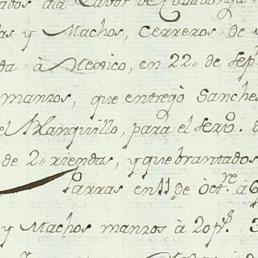 ados dha Labor de Covadonga
as y Machos, Cerreros de
da à Mexico, en 22,, de Sep
manzos, que entregò Sanche
el Blanquillo, para el serv.º
de 2,, riendas, y quebrantados
Parras en 11 de Oct.re à 6
y Machos manzos à 20 p.s 3